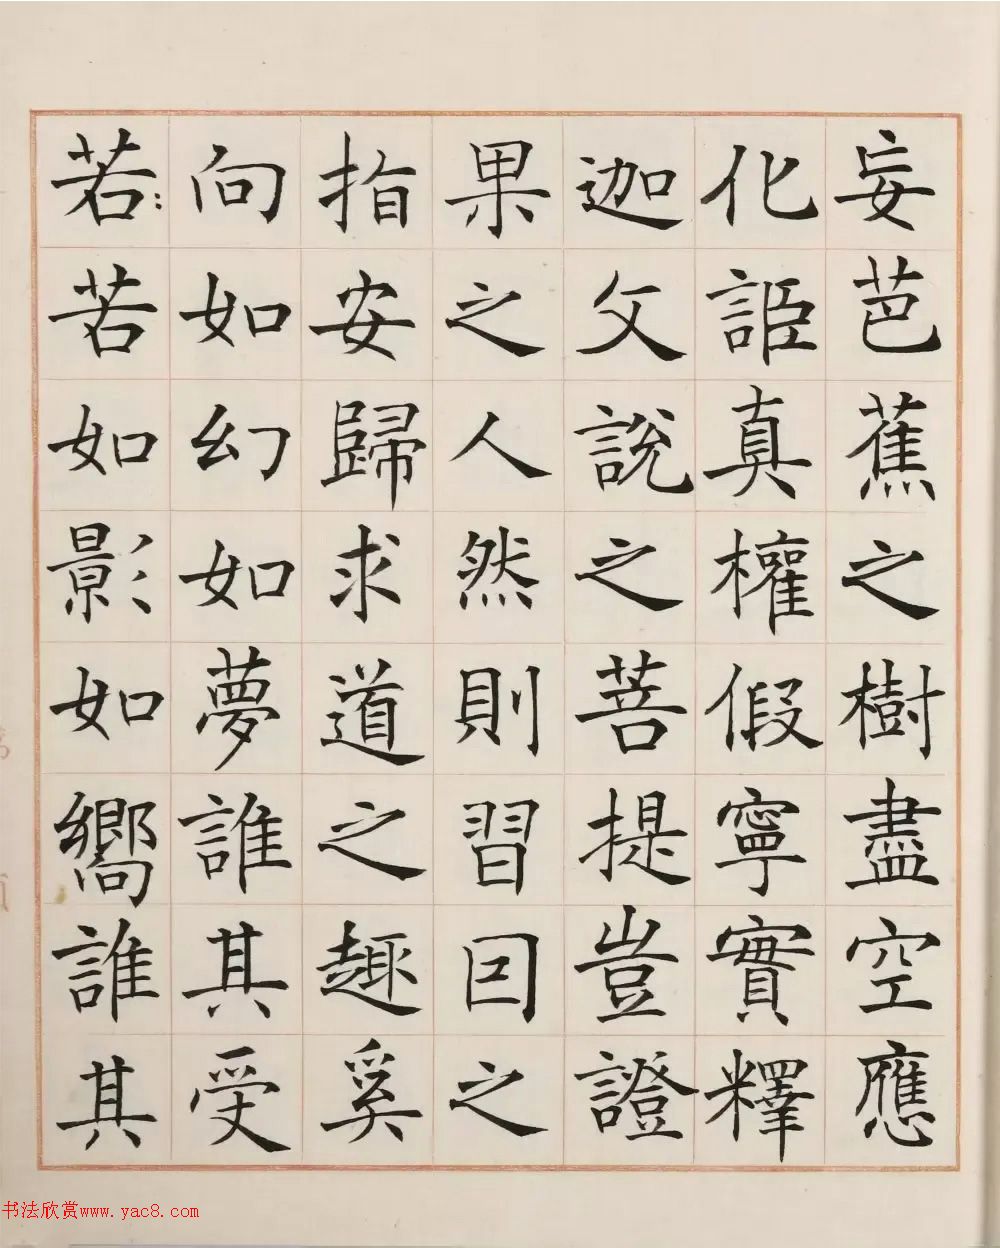 妄芭蕉之樹盡空應
化詎真權假寧實釋
迦父說之菩提豈證
果之人然則習因之
指安歸求道之趣奚
向如幻如夢誰其受
若若如影如嚮誰其
书法欣赏www.yac8.com